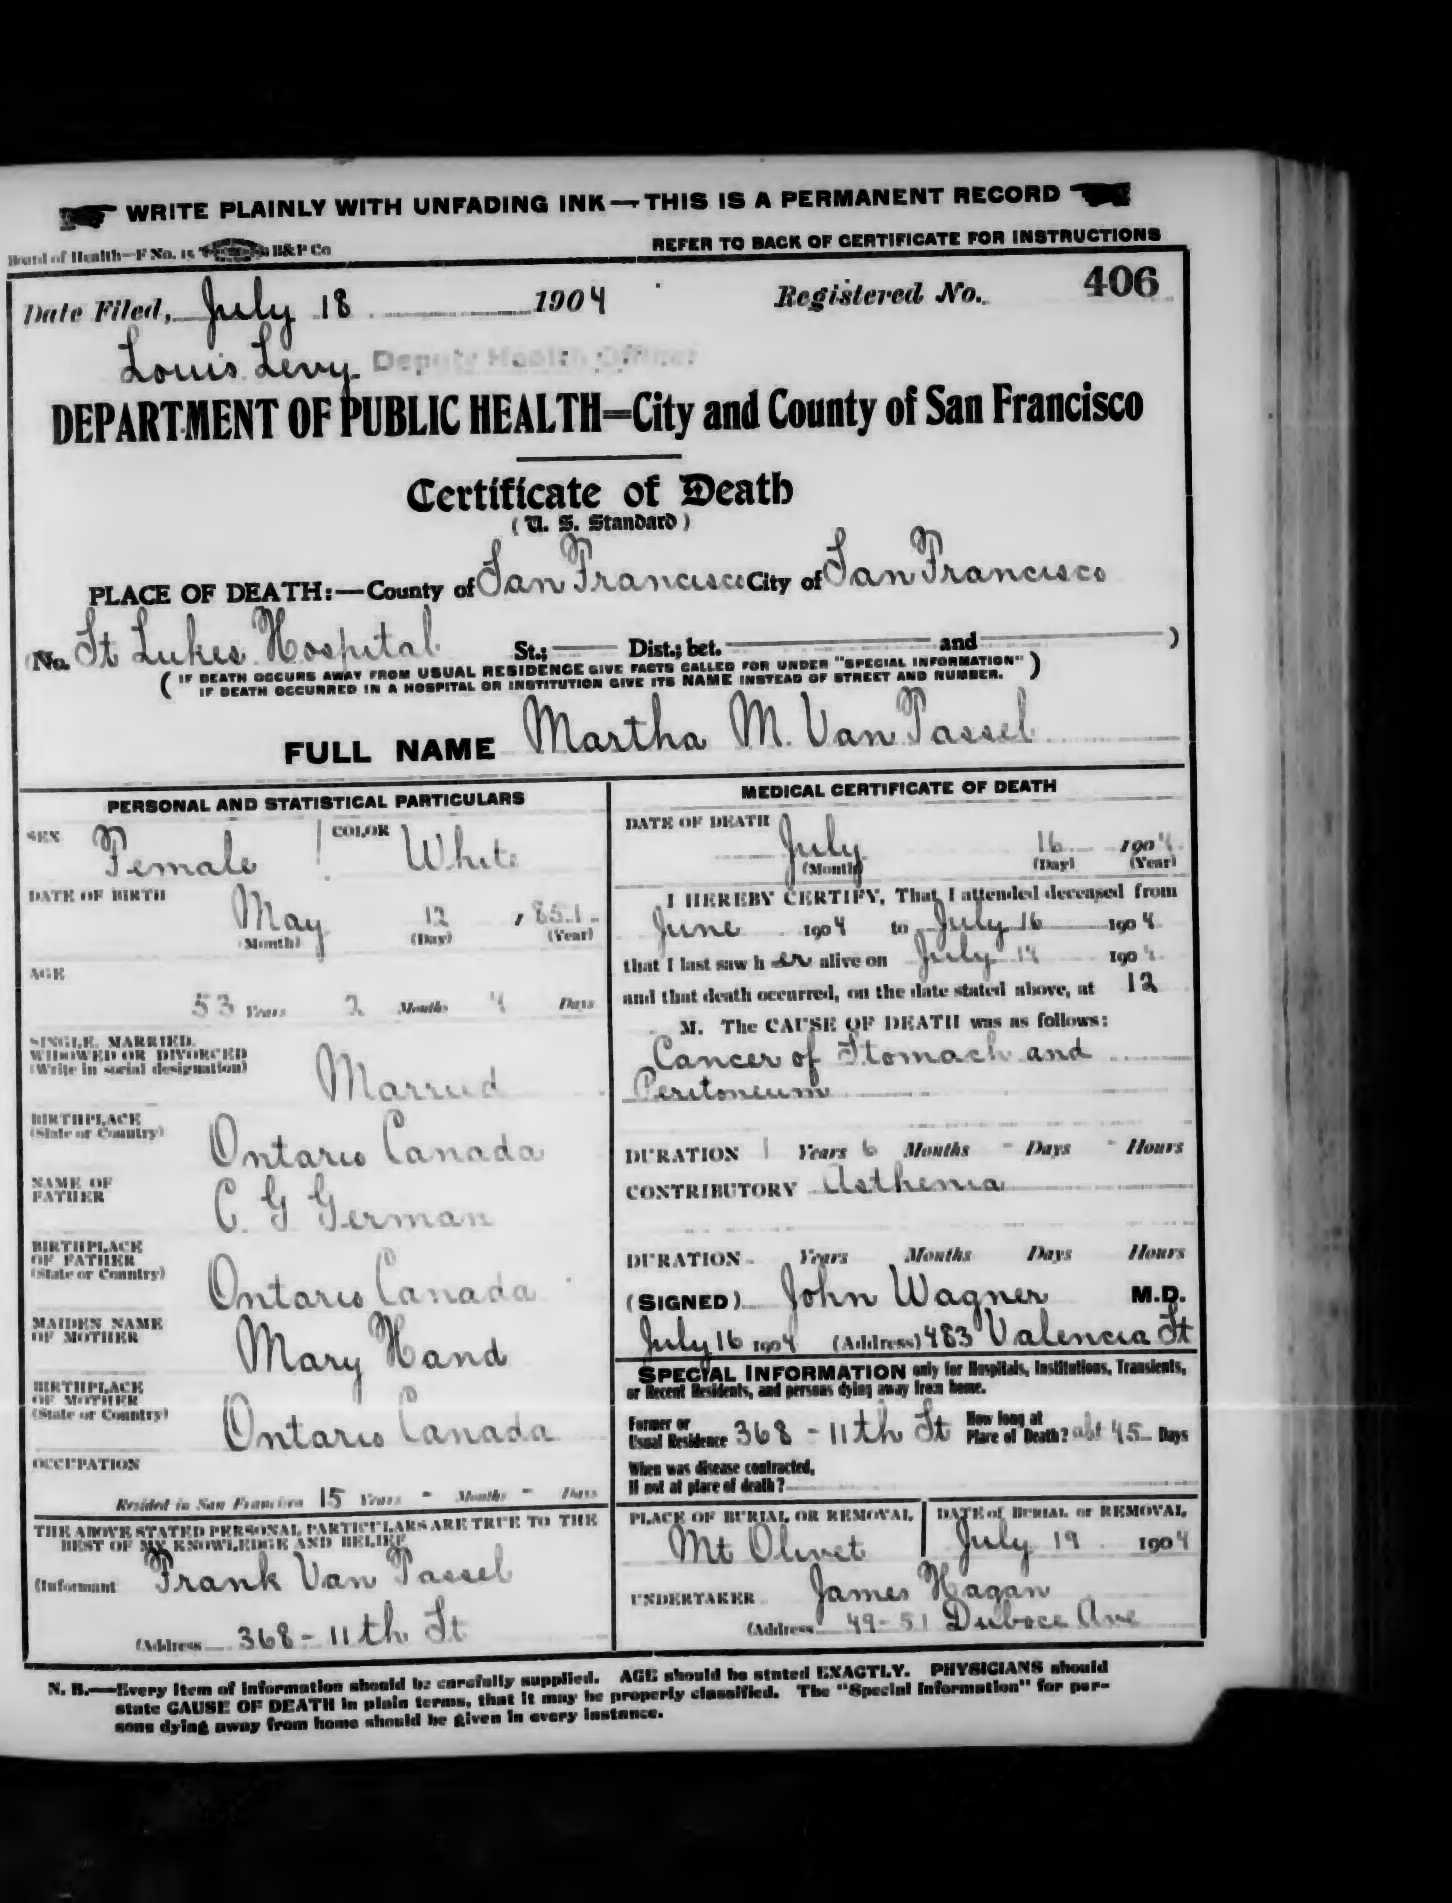 WRITE PLAINLY WITH UNFADING INK—THIS IS A PERMANENT RECORD
Board of Health—F No. 15 B&P Co
REFER TO BACK OF CERTIFICATE FOR INSTRUCTIONS
Date Filed, July 18 1904 Registered No. 406
Louis Levy Deputy Health Officer
DEPARTMENT OF PUBLIC HEALTH=City and County of San Francisco
Certificate of Death
(U. S. Standard)
PLACE OF DEATH:—County of San Francisco City of San Francisco
(No. St Lukes Hospital St.; Dist.; bet. and )
( IF DEATH OCCURS AWAY FROM USUAL RESIDENCE GIVE FACTS CALLED FOR UNDER "SPECIAL INFORMATION" )
IF DEATH OCCURRED IN A HOSPITAL OR INSTITUTION GIVE ITS NAME INSTEAD OF STREET AND NUMBER.
FULL NAME Martha M. Van Tassel
PERSONAL AND STATISTICAL PARTICULARS
SEX Female COLOR White
DATE OF BIRTH
May 12 1851
(Month) (Day) (Year)
AGE
53 Years 2 Months 4 Days
SINGLE, MARRIED,
WIDOWED OR DIVORCED
(Write in social designation)
Married
BIRTHPLACE
(State or Country)
Ontario Canada
NAME OF
FATHER
C. G. German
BIRTHPLACE
OF FATHER
(State or Country)
Ontario Canada
MAIDEN NAME
OF MOTHER
Mary Hand
BIRTHPLACE
OF MOTHER
(State or Country)
Ontario Canada
OCCUPATION
Resided in San Francisco 15 Years - Months - Days
THE ABOVE STATED PERSONAL PARTICULARS ARE TRUE TO THE
BEST OF MY KNOWLEDGE AND BELIEF
(Informant Frank Van Tassel
(Address 368-11th St
MEDICAL CERTIFICATE OF DEATH
DATE OF DEATH
July 16 1904
(Month) (Day) (Year)
I HEREBY CERTIFY, That I attended deceased from
June 1904 to July 16 1904
that I last saw her alive on July 14 1904
and that death occurred, on the date stated above, at 12
M. The CAUSE OF DEATH was as follows:
Cancer of Stomach and
Peritoneum
DURATION 1 Years 6 Months - Days - Hours
CONTRIBUTORY Asthenia
DURATION Years Months Days Hours
(SIGNED) John Wagner M.D.
July 16 1904 (Address) 483 Valencia St
SPECIAL INFORMATION only for Hospitals, Institutions, Transients,
or Recent Residents, and persons dying away from home.
Former or
Usual Residence 368-11th St How long at
Place of Death? abt 45 Days
When was disease contracted,
If not at place of death?
PLACE OF BURIAL OR REMOVAL
Mt Olivet
DATE of BURIAL or REMOVAL
July 19 1904
UNDERTAKER James Hagan
(Address 49-51 Duboce Ave
N. B.—Every item of information should be carefully supplied. AGE should be stated EXACTLY. PHYSICIANS should
state CAUSE OF DEATH in plain terms, that it may be properly classified. The "Special Information" for per-
sons dying away from home should be given in every instance.